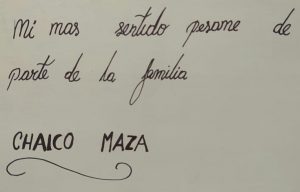 Mi mas sentido pesame de
parte de la familia
CHAICO MAZA